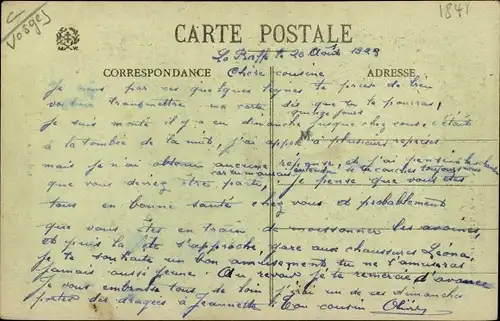 Vosges
1841
CARTE POSTALE
le 20 Août 1923
CORRESPONDANCE
ADRESSE
Chère cousine
Je viens par ces quelques lignes te prier de bien
vouloir transmettre ma carte dès que tu le pourras,
quinze jours
Je suis monté il y a un dimanche jusque chez vous c'était
à la tombée de la nuit, j'ai appelé à plusieurs reprises
mais je n'ai obtenu aucune réponse, et j'ai pensé
que vous deviez être partis, je pense que vous êtes
tous en bonne santé chez vous et probablement
que vous êtes en train de moissonner les avoines,
et puis la fête s'approche, gare aux chaussures Léona,
je te souhaite un bon amusement, tu ne t'amuseras
jamais aussi jeune. Au revoir je te remercie d'avance
Je vous embrasse tous de loin j'irai un de ces dimanches
porter des dragées à Jeannette. Ton cousin